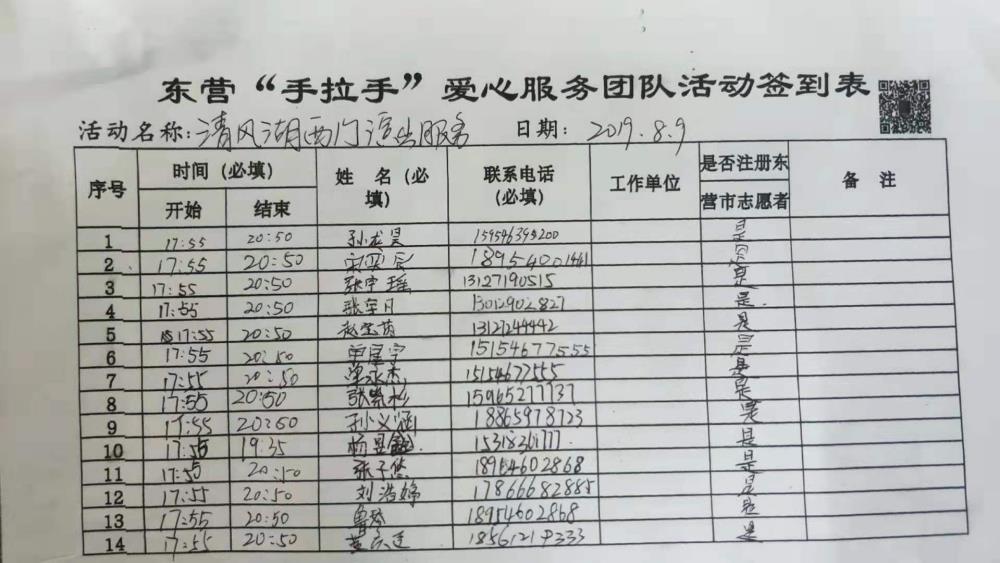 东营“手拉手”爱心服务团队活动签到表
活动名称:清风湖西门演出服务 日期: 2019.8.9
序号 时间（必填） 姓 名（必填） 联系电话（必填） 工作单位 是否注册东营市志愿者 备 注
开始 结束
1 17:55 20:50 孙龙昊 159546395200 是
2 17:55 20:50 18954001441 是
3 17:55 20:50 张宇瑶 13127190515 是
4 17:55 20:50 张车月 13012902827 是
5 17:55 20:50 13127244442 是
6 17:55 20:50 曾星宇 15154677555 是
7 17:55 20:50 15154677555 是
8 17:55 20:50 张崇杉 15965277737 是
9 17:55 20:50 孙义涵 18865978723 是
10 17:55 19:35 杨昱鑫 是
11 17:50 20:50 张子悠 18954602868 是
12 17:55 20:50 刘浩婷 17866682885 是
13 17:55 20:50 鲁琴 18954602868 是
14 17:55 20:50 是